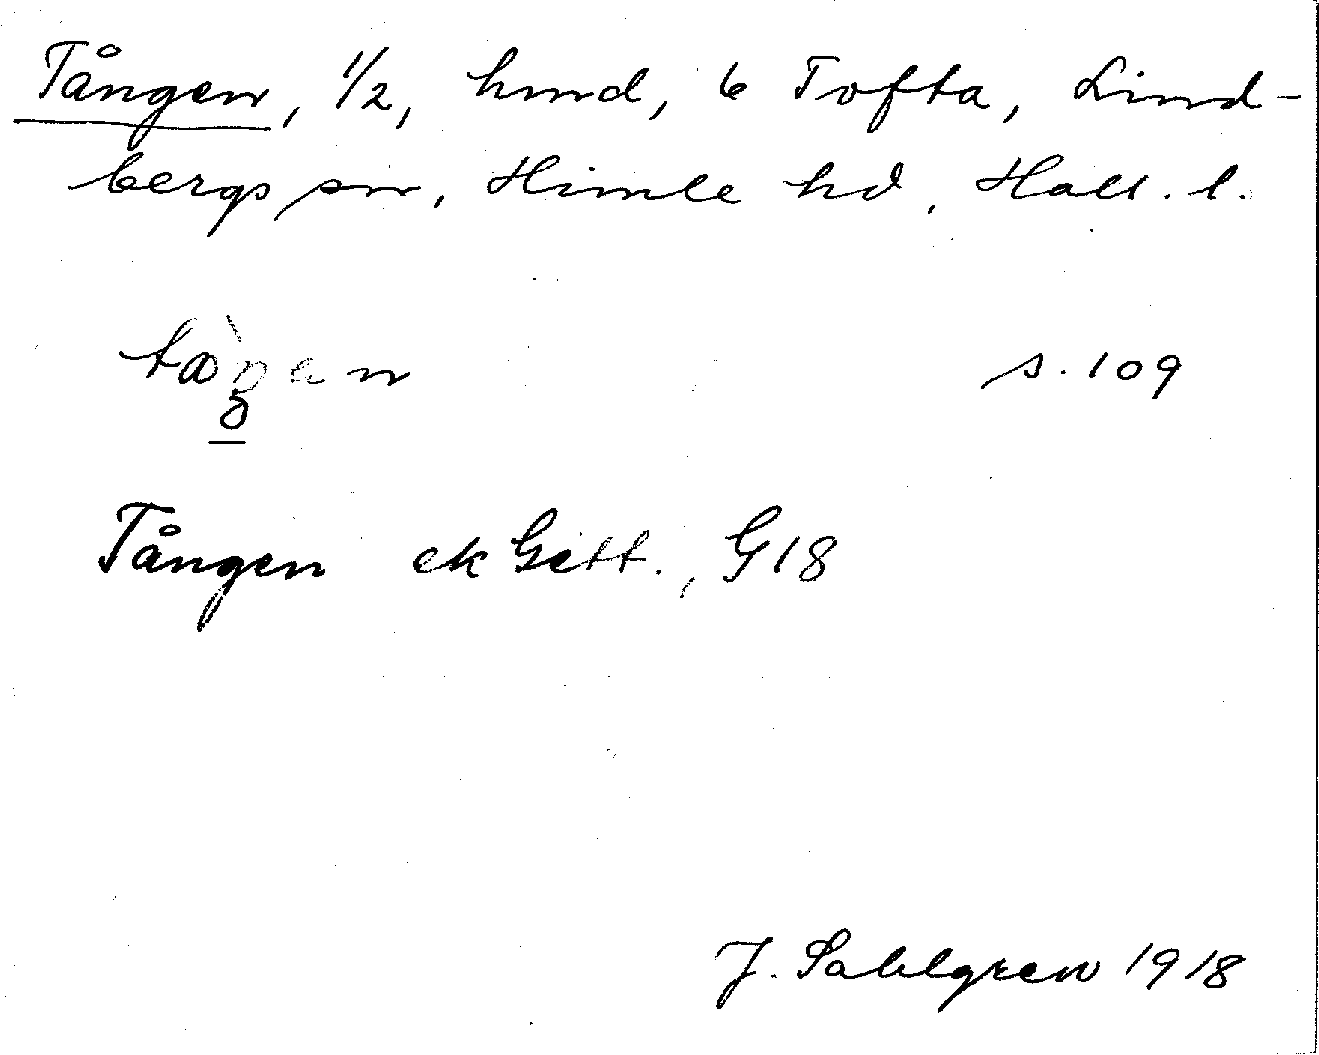 Tången, 1/2, hmd, 6 Tofta, Lind-
bergs sn, Himle hd, Hall. l.
s. 109
Tången ek Gett., G18
J. Sahlgren 1918